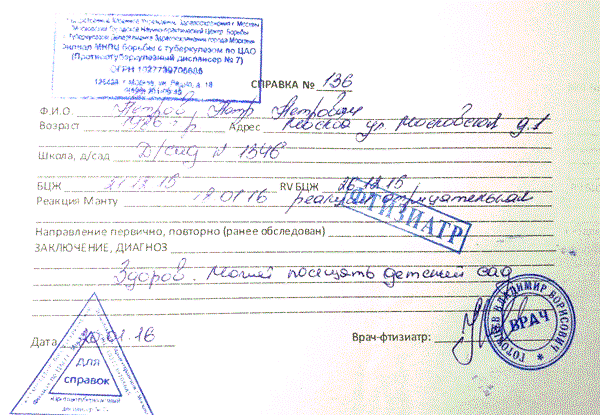 Государственное Казенное Учреждение Здравоохранения г. Москвы
Московский Городской Научно-практический Центр Борьбы
с Туберкулезом Департамента Здравоохранения города Москвы
Филиал МНПЦ борьбы с туберкулезом по ЦАО
(Противотуберкулезный диспансер № 7)
ОГРН 1027739706686
СПРАВКА № 136
Ф.И.О. Петров Петр Петрович
Возраст г.р Адрес Москва ул. Московская д.1
Школа, д/сад Д/сад N 1346
БЦЖ 21.12.15 RV БЦЖ 26.12.15
Реакция Манту 19.01.16 реакция отрицательная
ФТИЗИАТР
Направление первично, повторно (ранее обследован)
ЗАКЛЮЧЕНИЕ, ДИАГНОЗ
Здоров. Может посещать детский сад
Дата 20.01.16 Врач-фтизиатр:
для
справок
ВЛАДИМИР БОРИСОВИЧ
ВРАЧ